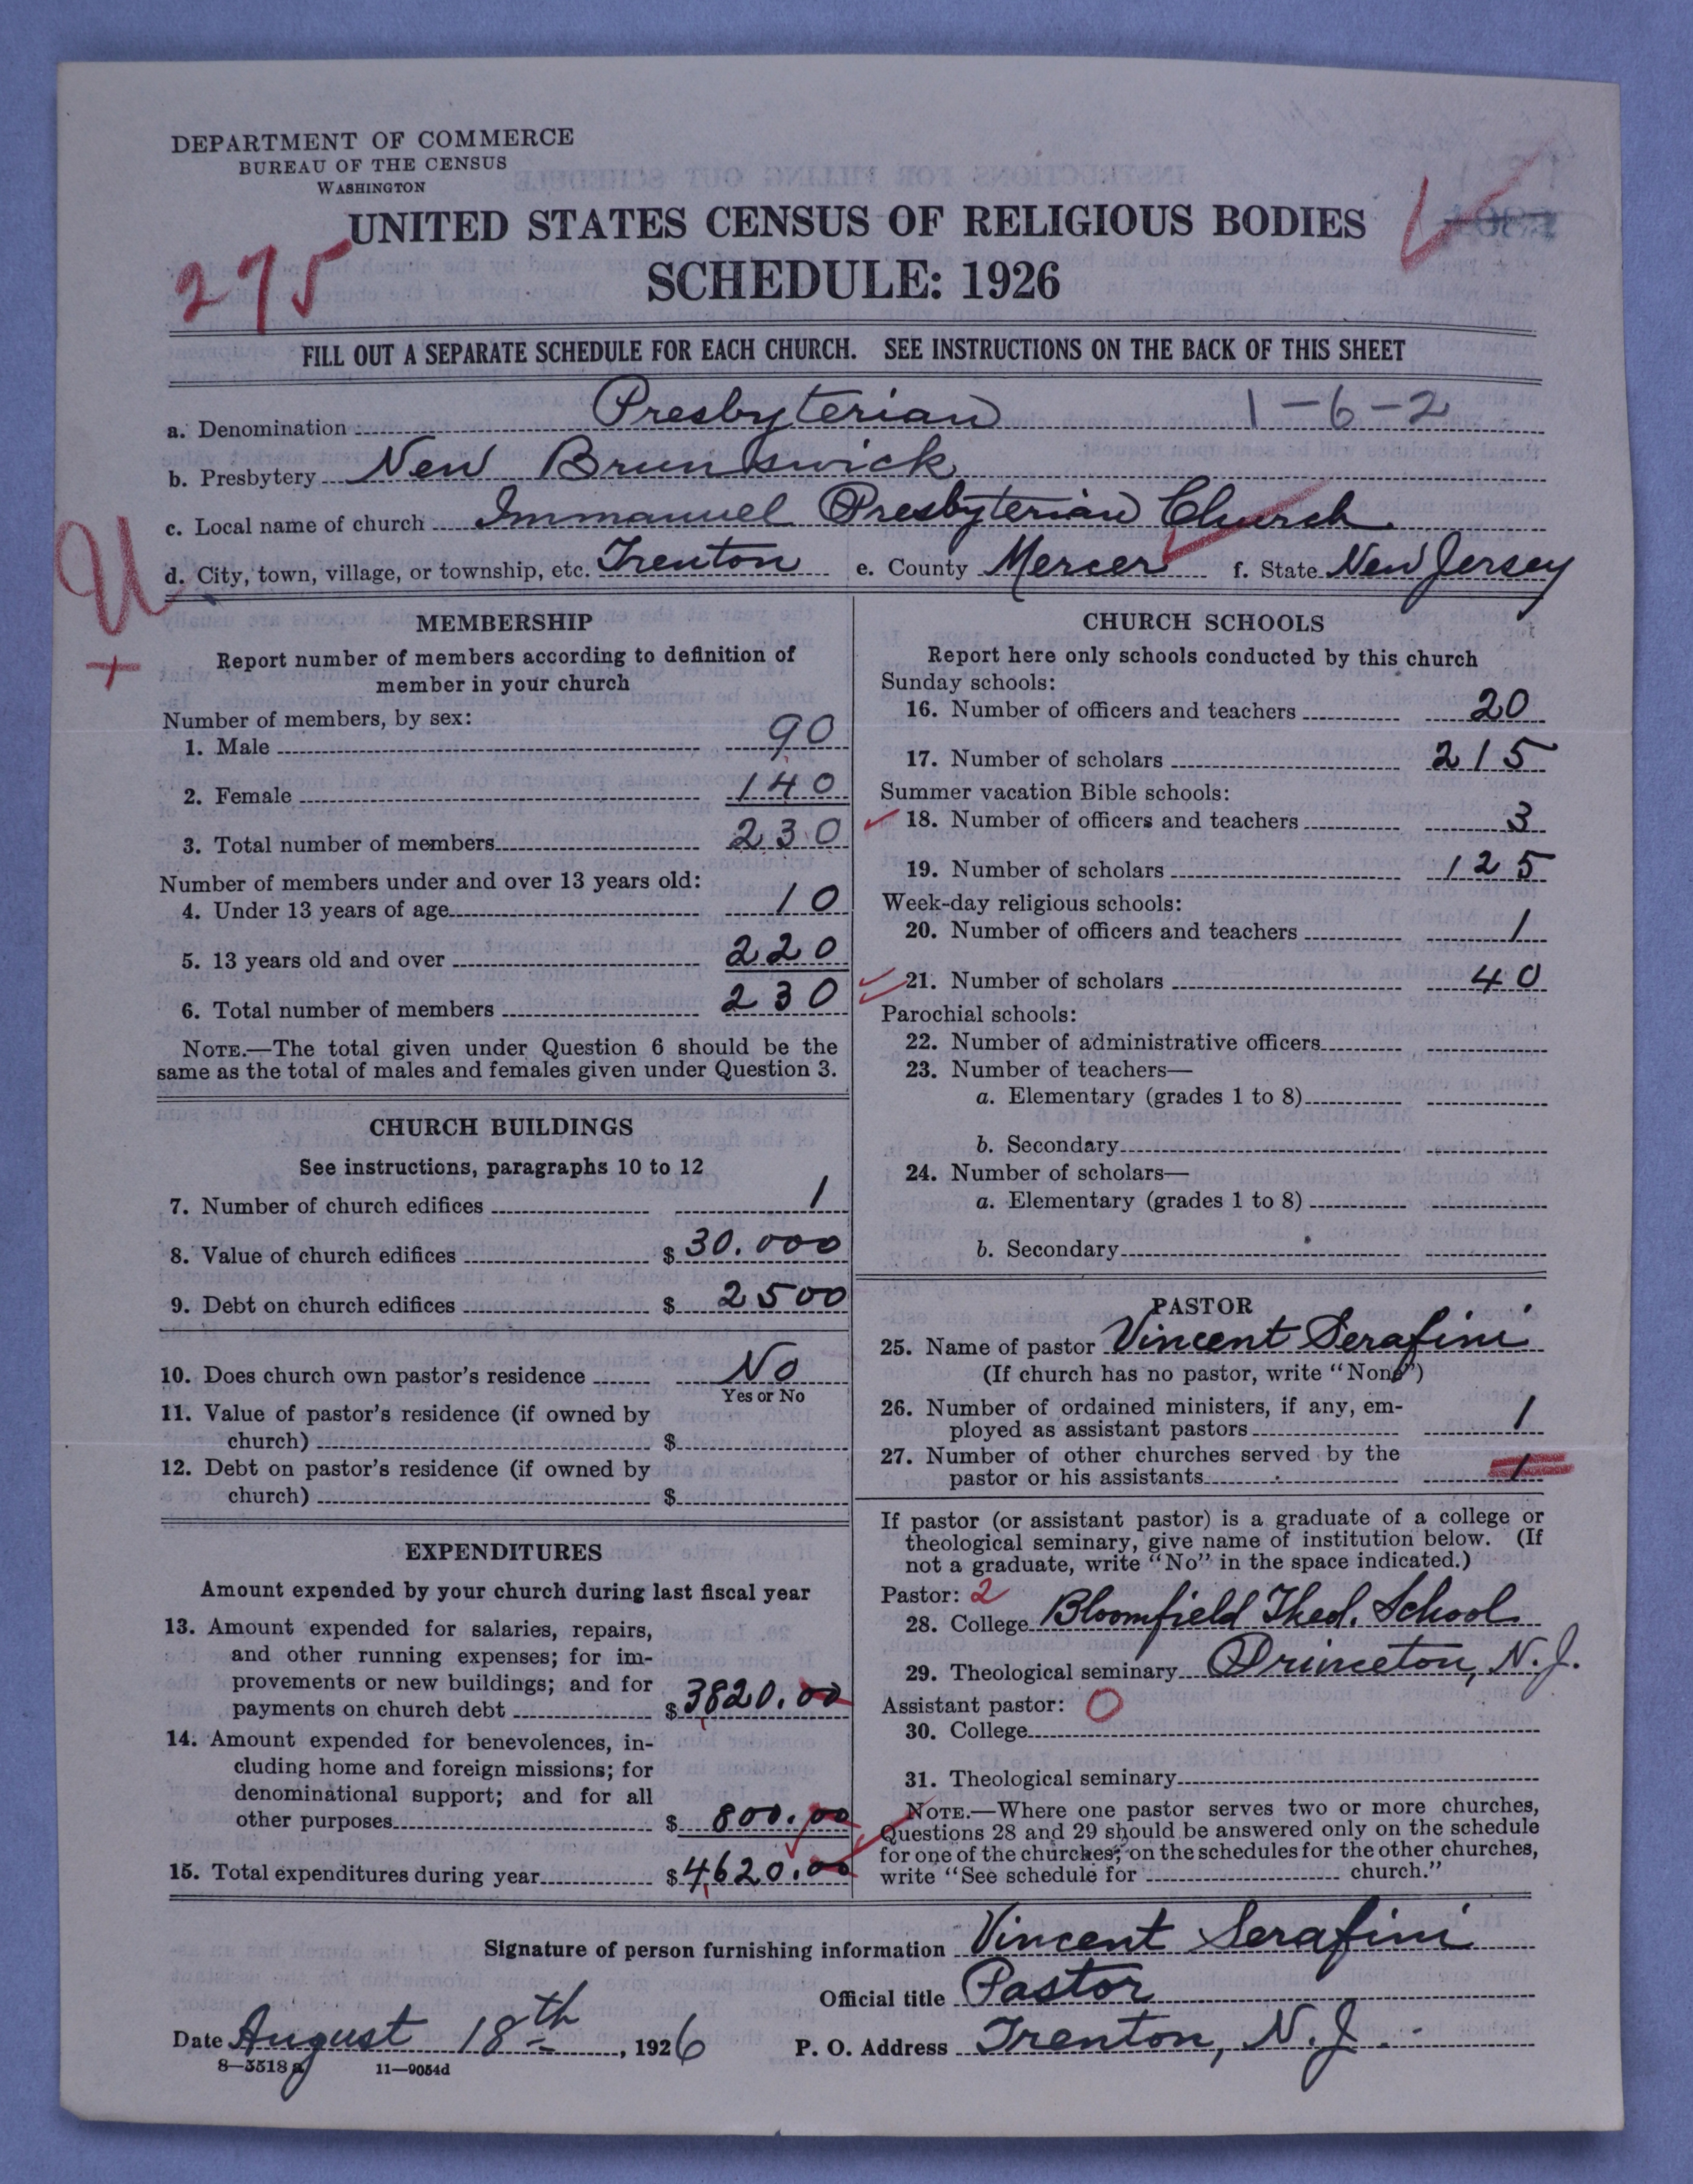 DEPARTMENT OF COMMERCE
BUREAU OF THE CENSUS
WASHINGTON
UNITED STATES CENSUS OF RELIGIOUS BODIES
275
SCHEDULE: 1926
FILL OUT A SEPARATE SCHEDULE FOR EACH CHURCH. SEE INSTRUCTIONS ON THE BACK OF THIS SHEET
a. Denomination Presbyterian 1-6-2
b. Presbytery New Brunswick
c. Local name of church Immanuel Presbyterian Church
U
d. City, town, village, or township, etc. Trenton e. County Mercer f. State New Jersey
+
MEMBERSHIP
Report number of members according to definition of
member in your church
Number of members, by sex:
1. Male 90
2. Female 140
3. Total number of members 230
Number of members under and over 13 years old:
4. Under 13 years of age 10
5. 13 years old and over 220
6. Total number of members 230
NOTE.—The total given under Question 6 should be the
same as the total of males and females given under Question 3.
CHURCH BUILDINGS
See instructions, paragraphs 10 to 12
7. Number of church edifices 1
8. Value of church edifices $ 30.000
9. Debt on church edifices $ 2500
10. Does church own pastor's residence No
Yes or No
11. Value of pastor's residence (if owned by
church) $
12. Debt on pastor's residence (if owned by
church) $
EXPENDITURES
Amount expended by your church during last fiscal year
13. Amount expended for salaries, repairs,
and other running expenses; for im-
provements or new buildings; and for
payments on church debt $ 3820.00
14. Amount expended for benevolences, in-
cluding home and foreign missions; for
denominational support; and for all
other purposes $ 800.00
15. Total expenditures during year $ 4620.00
CHURCH SCHOOLS
Report here only schools conducted by this church
Sunday schools:
16. Number of officers and teachers 20
17. Number of scholars 215
Summer vacation Bible schools:
18. Number of officers and teachers 3
19. Number of scholars 125
Week-day religious schools:
20. Number of officers and teachers 1
21. Number of scholars 40
Parochial schools:
22. Number of administrative officers
23. Number of teachers—
a. Elementary (grades 1 to 8)
b. Secondary
24. Number of scholars—
a. Elementary (grades 1 to 8)
b. Secondary
PASTOR
25. Name of pastor Vincent Serafini
(If church has no pastor, write "None")
26. Number of ordained ministers, if any, em-
ployed as assistant pastors 1
27. Number of other churches served by the
pastor or his assistants 1
If pastor (or assistant pastor) is a graduate of a college or
theological seminary, give name of institution below. (If
not a graduate, write "No" in the space indicated.)
Pastor: 2
28. College Bloomfield Theol. School
29. Theological seminary Princeton, N.J.
Assistant pastor: 0
30. College
31. Theological seminary
NOTE.—Where one pastor serves two or more churches,
Questions 28 and 29 should be answered only on the schedule
for one of the churches; on the schedules for the other churches,
write "See schedule for church."
Signature of person furnishing information Vincent Serafini
Official title Pastor
Date August 18th, 1926 P. O. Address Trenton, N.J.
8—5518a 11—9054d